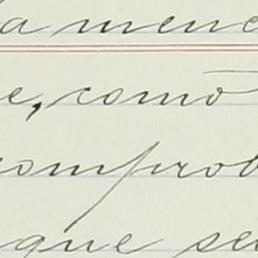 la menc
e, como
comprob
que se